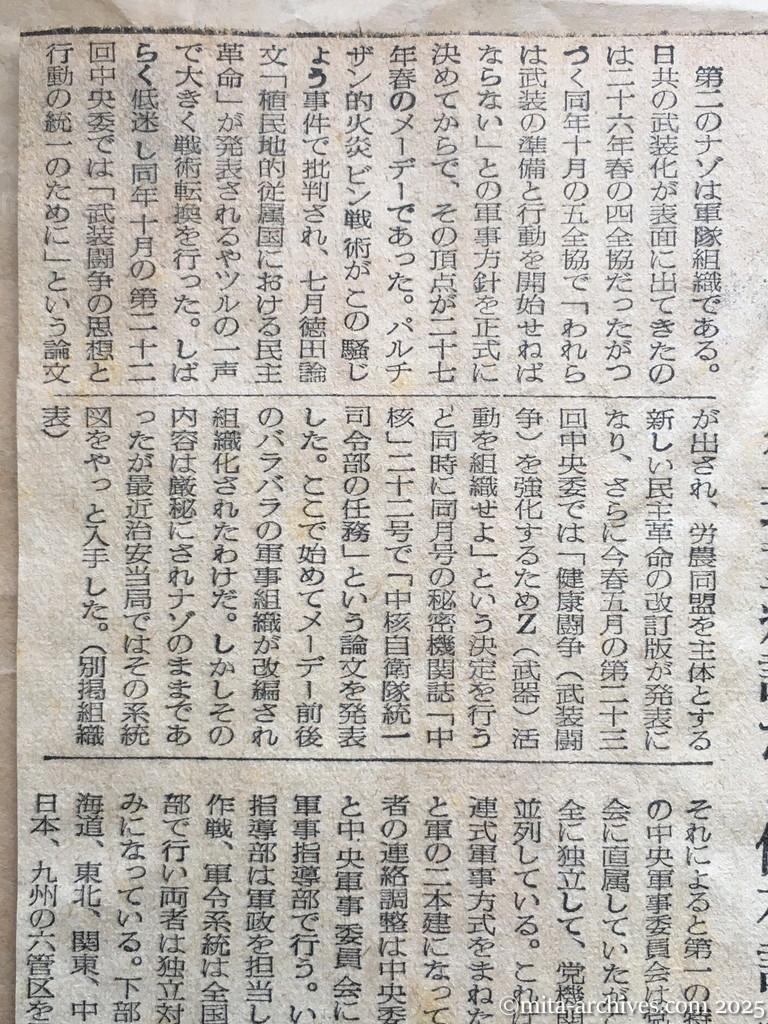 第二のナゾは軍隊組織である。
日共の武装化が表面に出てきたの
は二十六年春の四全協だったがつ
づく同年十月の五全協で「われら
は武装の準備と行動を開始せねば
ならない」との軍事方針を正式に
決めてからで、その頂点が二十七
年春のメーデーであった。パルチ
ザン的火炎ビン戦術がこの騒じ
ょう事件で批判され、七月徳田論
文「植民地的従属国における民主
革命」が発表されるやツルの一声
で大きく戦術転換を行った。しば
らく低迷し同年十月の第二十二
回中央委では「武装闘争の思想と
行動の統一のために」という論文
が出され、労農同盟を主体とする
新しい民主革命の改訂版が発表に
なり、さらに今春五月の第二十三
回中央委では「健康闘争（武装闘
争）を強化するためZ（武器）活
動を組織せよ」という決定を行う
と同時に同月号の秘密機関誌「中
核」二十二号で「中核自衛隊統一
司令部の任務」という論文を発表
した。ここで始めてメーデー前後
のバラバラの軍事組織が改編され
組織化されたわけだ。しかしその
内容は厳秘にされナゾのままであ
ったが最近治安当局ではその系統
図をやっと入手した。（別掲組織
表）
それによると第一の特
の中央軍事委員会は党
会に直属していたが
全に独立して、党機関
並列している。これは
連式軍事方式をまねた
と軍の二本建になって
者の連絡調整は中央委
と中央軍事委員会に
軍事指導部で行う。い
指導部は軍政を担当し
作戦、軍令系統は全国
部で行い両者は独立対
みになっている。下部
海道、東北、関東、中
日本、九州の六管区を
©mita-archives.com 2025